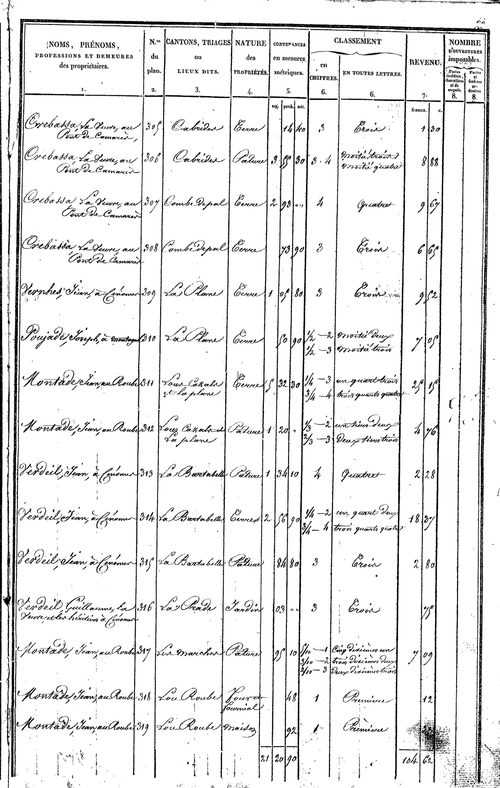 NOMS, PRÉNOMS,
PROFESSIONS ET DEMEURES
des propriétaires.
1.
N.os
du
plan.
2.
CANTONS, TRIAGES
ou
LIEUX DITS.
3.
NATURE
des
PROPRIÉTÉS.
4.
CONTENANCES
en mesures
métriques.
5.
CLASSEMENT
en
CHIFFRES.
6.
EN TOUTES LETTRES.
6.
REVENU.
7.
NOMBRE
D'OUVERTURES
imposables.
8.
8.
francs. c.
Crebassa La Veuve, au Pont de Camarès 305 Cabrides Terre 14 40 3 Trois 1 30
Crebassa La Veuve, au Pont de Camarès 306 Cabrides Pature 3 55 30 3-4 moitié trois moitié quatre 8 88
Crebassa La Veuve, au Pont de Camarès 307 Combe depal Terre 2 93 " 4 Quatre 9 67
Crebassa La Veuve, au Pont de Camarès 308 Combe depal Terre 73 90 3 Trois 6 65
Jean, à 309 La Plane Terre 1 05 80 3 Trois 9 52
Poujade, Joseph, à 310 La Plane Terre 50 90 1/2-2 moitié deux 1/2-3 moitié trois 7 05
Montade, Jean, au Roube 311 Lous Cazals et la plane Terre 5 32 30 1/4-3 un quart trois 3/4-4 trois quarts quatre 25 15
Montade, Jean, au Roube 312 Lous Cazals et La plane Pature 1 20 " 1/3-2 un tiers deux 2/3-3 Deux tiers trois 4 76
Verdeil, Jean, à 313 La Bartabelle Pature 1 34 10 4 Quatre 2 28
Verdeil, Jean, à 314 La Bartabelle Terre 2 56 90 1/4-2 un quart deux 3/4-4 trois quarts quatre 18 37
Verdeil, Jean, à 315 La Bartabelle Pature 84 80 3 Trois 2 80
Verdeil, Guillaume, La Veuve et les héritiers à 316 La Prade Jardin 03 " 3 Trois 75
Montade, Jean, au Roube 317 Pature 95 10 5/10-1 Cinq dixièmes un 3/10-2 trois dixièmes deux 2/10-3 Deux dixièmes trois 7 09
Montade, Jean, au Roube 318 Lou Roube Four et fournial 48 1 Première 12
Montade, Jean, au Roube 319 Lou Roube maison 92 1 Première
21 20 90 104 62